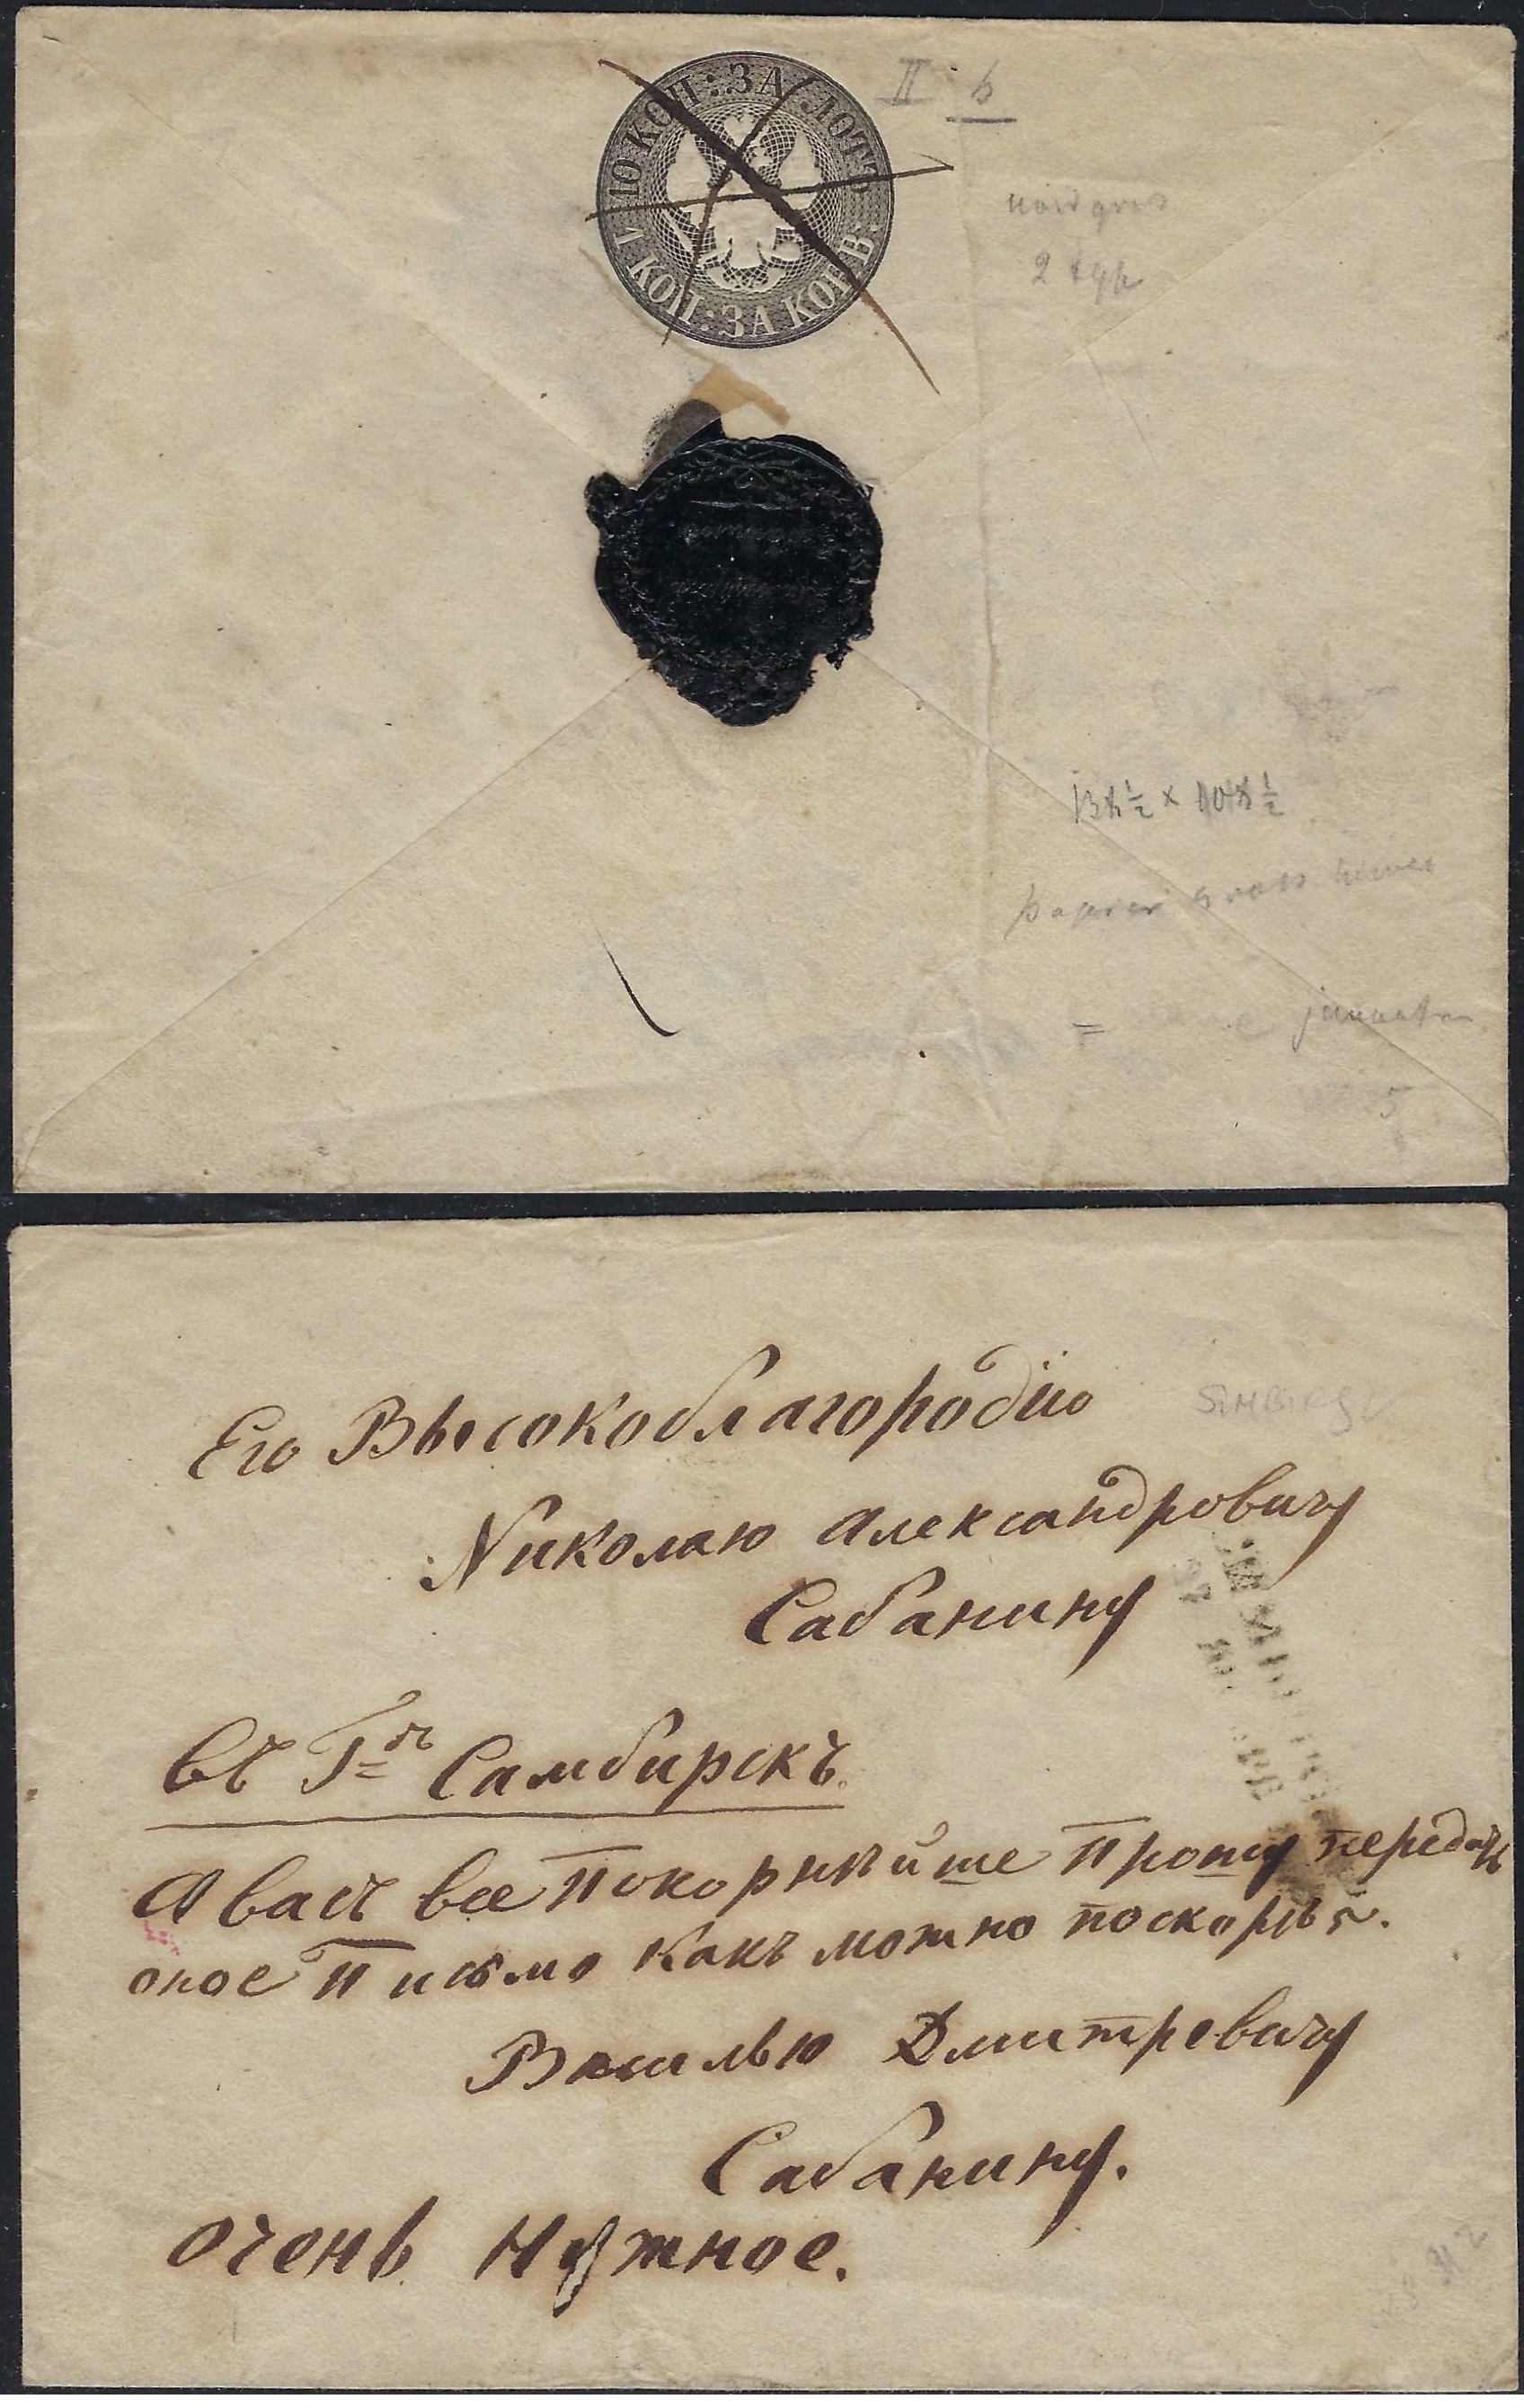 10 КОП: ЗА ЛОТЪ
1 КОП: ЗА КОНВ:
II b
2 typ
SIMBIRSK
Его Высокоблагородію
Николаю Александровичу
Сабанину
въ Г=дъ Самбирскъ.
А васъ все Покорнѣйше Прошу передать
оное Письмо какъ можно поскорѣѣ.
Василью Дмитревичу
Сабанину.
очень Нужное.